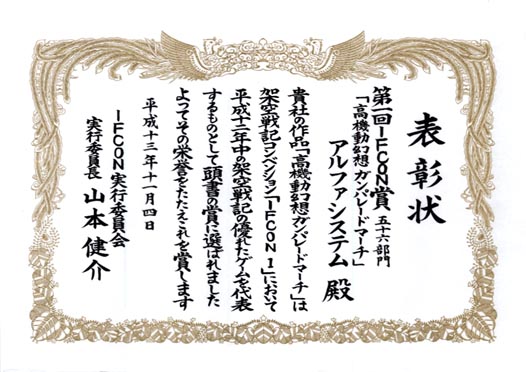 表彰状
第一回IFCON賞 五十六部門
「高機動幻想ガンパレードマーチ」
アルファシステム 殿
貴社の作品「高機動幻想ガンパレードマーチ」は
架空戦記コンベンション「IFCON1」において
平成十二年中の架空戦記の優れたゲームを代表
するものとして頭書の賞に選ばれました
よってその栄誉をたたえこれを賞します
平成十三年十一月四日
IFCON実行委員会
実行委員長 山本健介